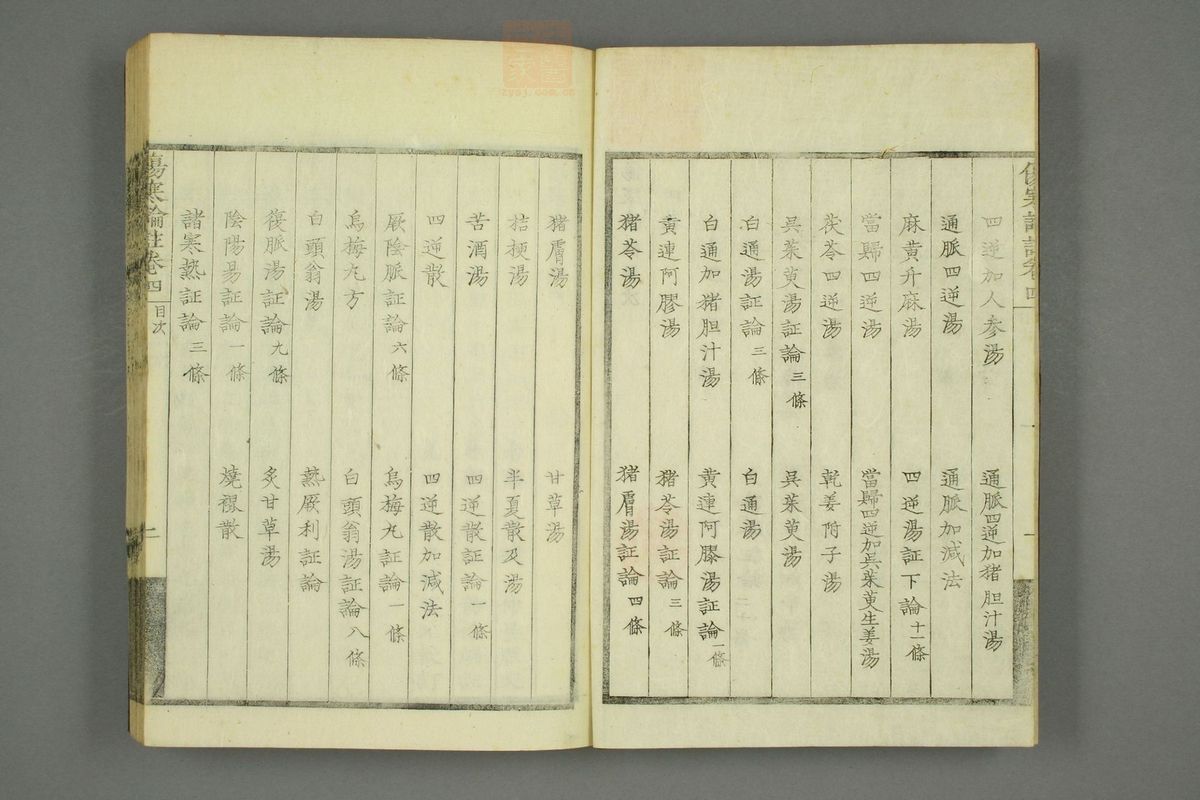 四逆加人参湯 通脈四逆加猪胆汁湯
通脈四逆湯 通脈加減法
麻黄升麻湯 四逆湯証下論 十一條
當歸四逆湯 當歸四逆加吳茱萸生姜湯
茯苓四逆湯 乾姜附子湯
吳茱萸湯証論 三條 吳茱萸湯
白通湯証論 三條 白通湯
白通加猪胆汁湯 黄連阿膠湯証論 一條
黄連阿膠湯 猪苓湯証論 三條
猪苓湯 猪膚湯証論 四條
猪膚湯 甘草湯
桔梗湯 半夏散及湯
苦酒湯 四逆散証論 一條
四逆散 四逆散加減法
厥陰脈証論 六條 烏梅丸証論 一條
烏梅丸方 白頭翁湯証論 八條
白頭翁湯 熱厥利証論
復脈湯証論 九條 炙甘草湯
陰陽易証論 一條 燒裩散
諸寒熱証論 三條
傷寒論註卷四 目次
zysj.com.cn